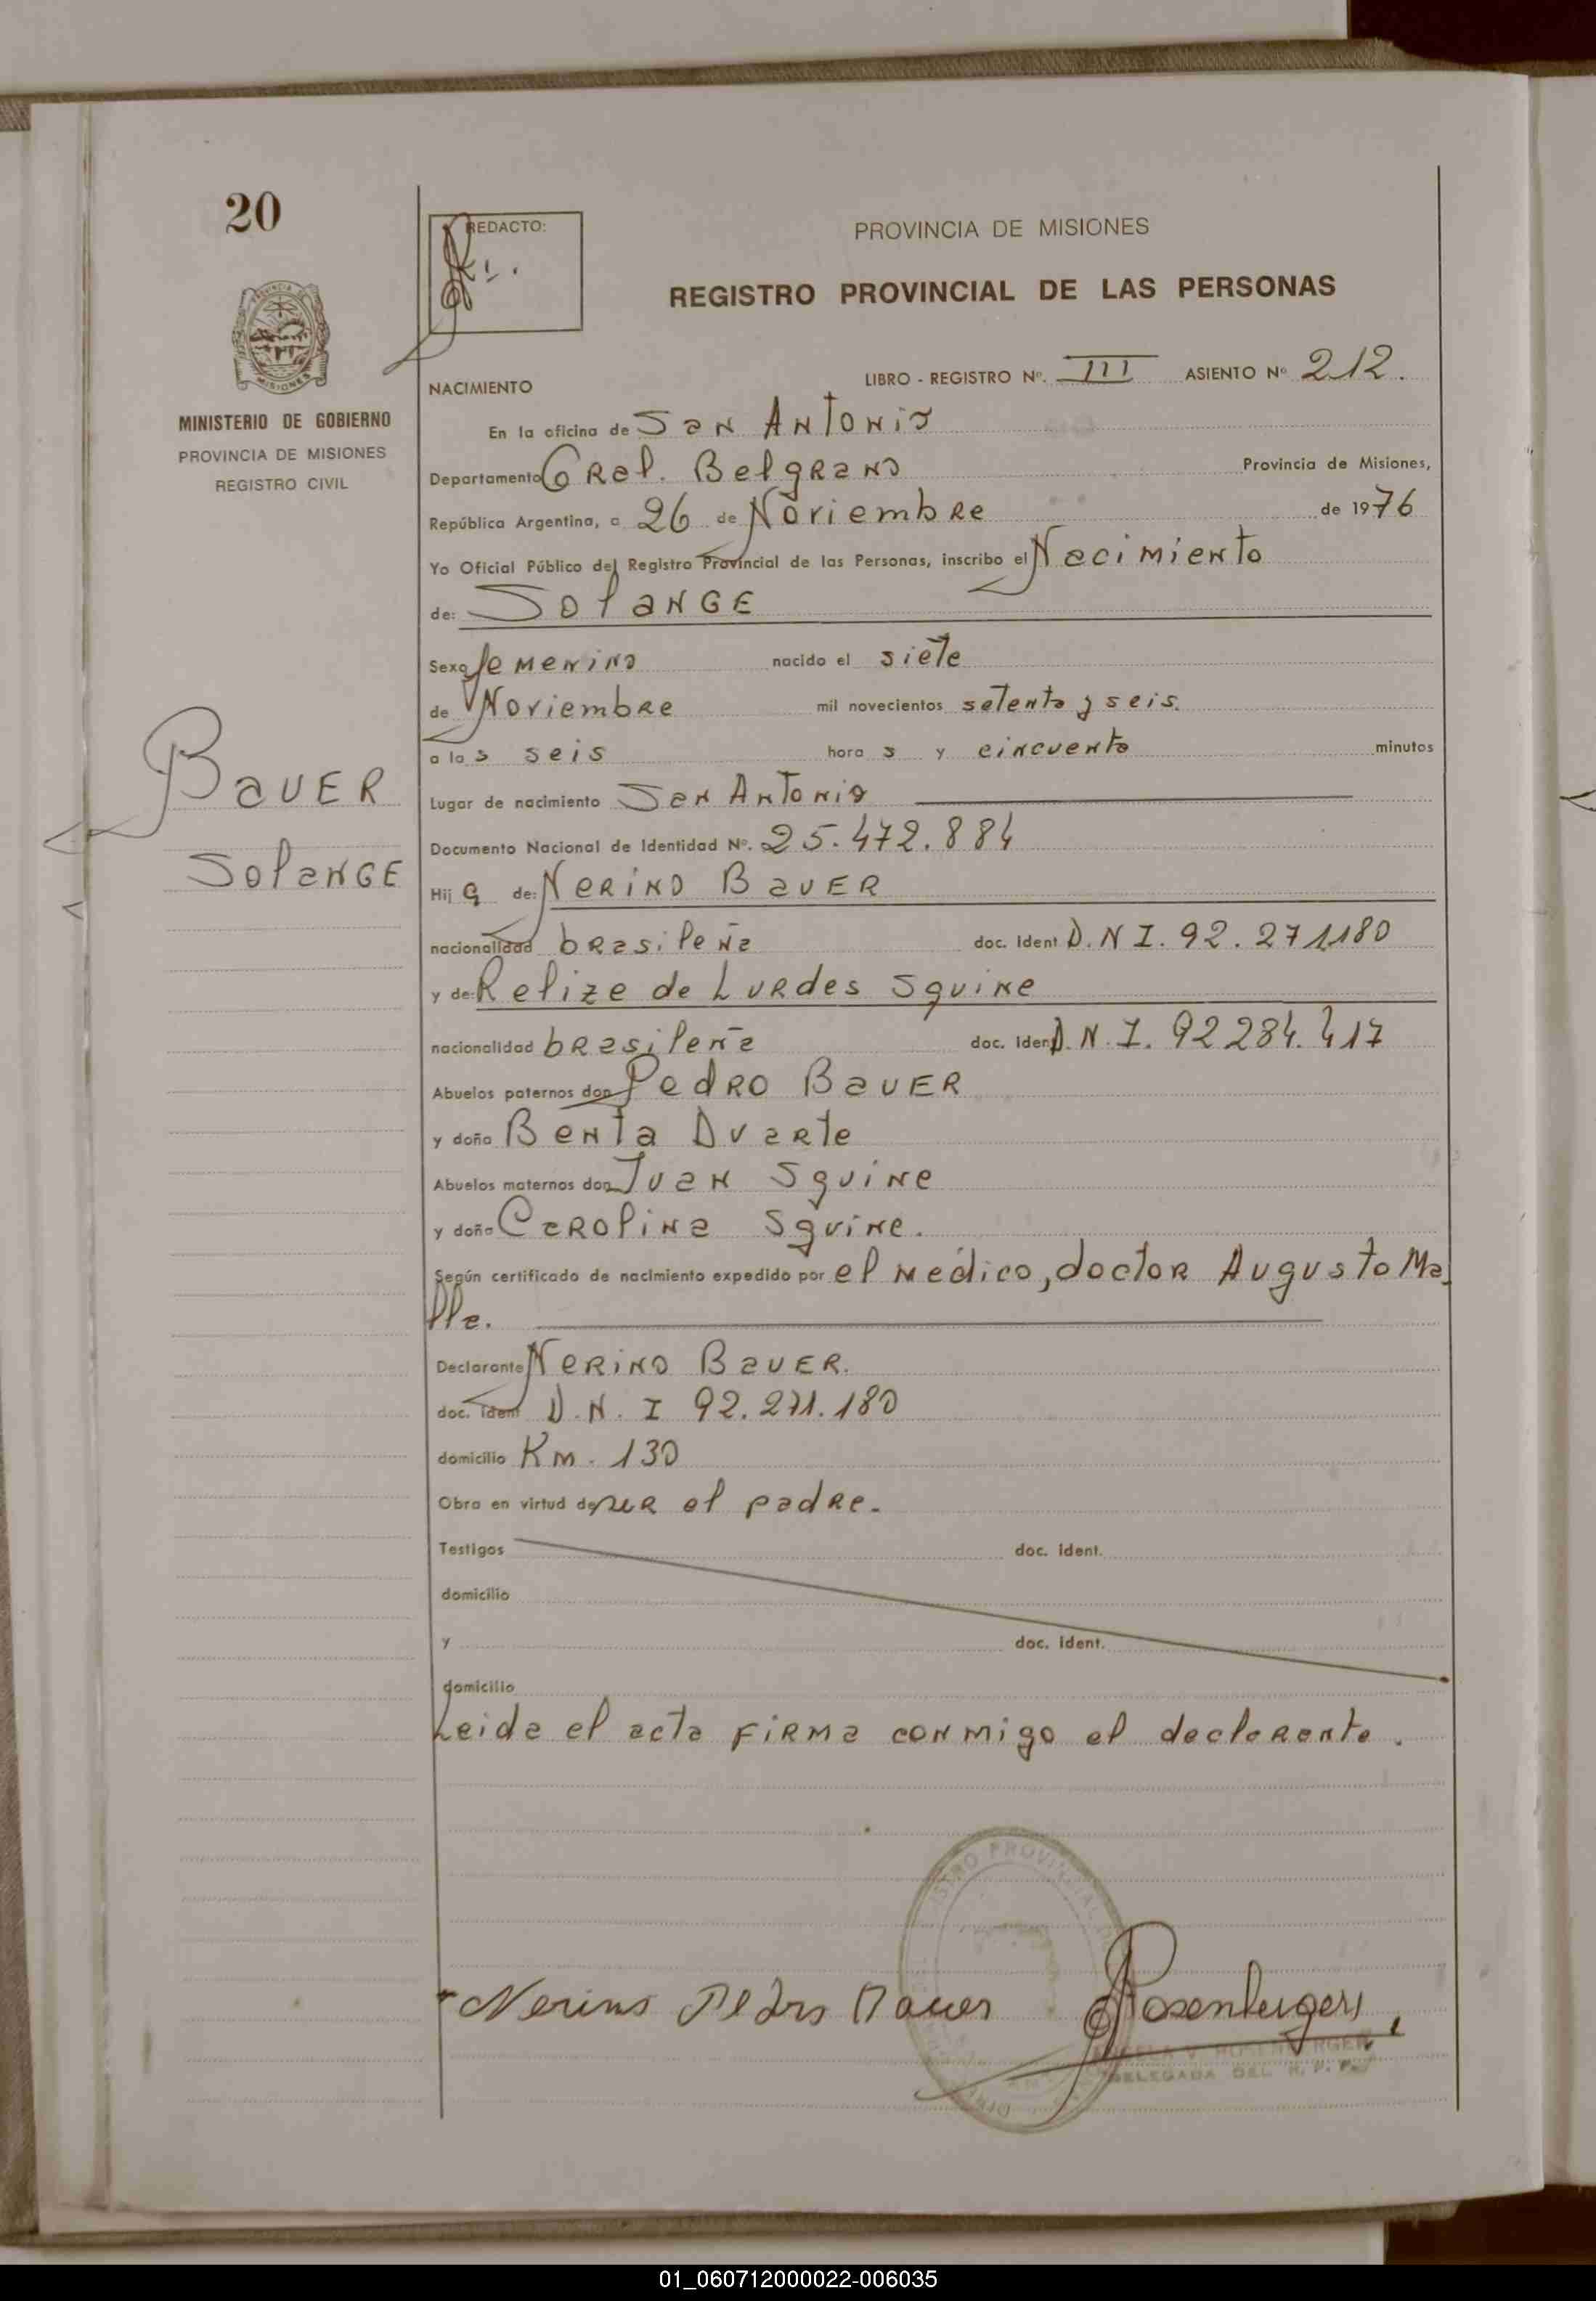 20
REDACTO:
PROVINCIA DE MISIONES
REGISTRO PROVINCIAL DE LAS PERSONAS
MINISTERIO DE GOBIERNO
PROVINCIA DE MISIONES
REGISTRO CIVIL
NACIMIENTO
LIBRO - REGISTRO Nº. III ASIENTO Nº 212.
En la oficina de San Antonio
Departamento Gral. Belgrano Provincia de Misiones,
República Argentina, a 26 de Noviembre de 1976
Yo Oficial Público del Registro Provincial de las Personas, inscribo el Nacimiento
de: SolanGE
Sexo femenino nacido el siete
de Noviembre mil novecientos setenta y seis.
a las seis horas y cincuenta minutos
Bauer
Solange
Lugar de nacimiento San Antonio
Documento Nacional de Identidad Nº. 25.472.884
Hija de: Nerino Bauer
nacionalidad brasileña doc. Ident D.N I. 92.271180
y de: Relize de Lurdes Squine
nacionalidad brasileña doc. Ident D.N.I. 92284.417
Abuelos paternos don Pedro Bauer
y doña Benta Duarte
Abuelos maternos don Juan Squine
y doña Carolina Squine.
Según certificado de nacimiento expedido por el médico, doctor Augusto Ma
lla.
Declarante Nerino Bauer.
doc. ident D.N.I 92.271.180
domicilio Km. 130
Obra en virtud de ser el padre.
Testigos doc. ident.
domicilio
y doc. ident.
domicilio
Leida el acta firma conmigo el declarante.
Nerino Pedro Bauer
Rosenberger
ROSENBERGER
DELEGADA DEL R. P. P.
01_060712000022-006035